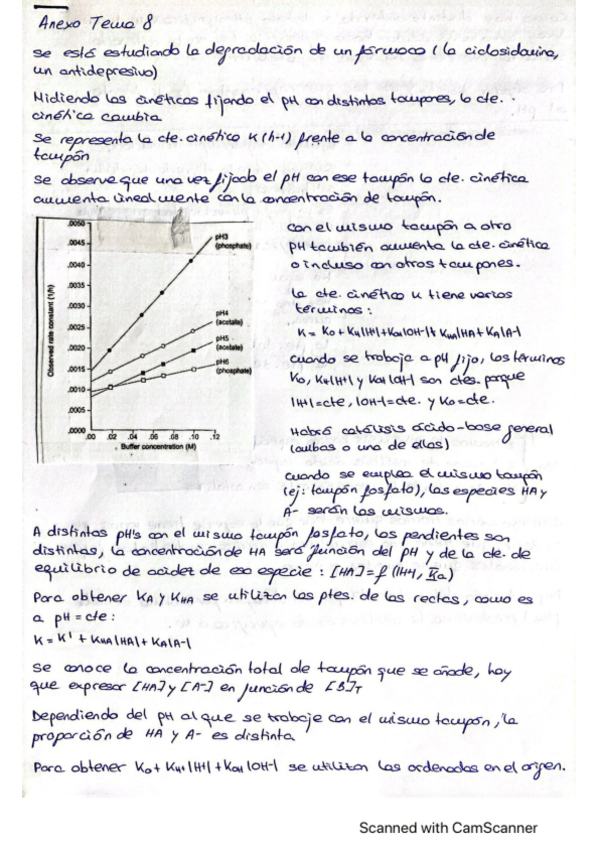 Anexo Tema 8
Se está estudiando la degradación de un fármaco (la ciclosidamina,
un antidepresivo)
Midiendo las cinéticas fijando el pH con distintos tampones, la cte.
cinética cambia
Se representa la cte. cinética K (h-1) frente a la concentración de
tampón
Se observa que una vez fijado el pH con ese tampón la cte. cinética
aumenta linealmente con la concentración de tampón.
Observed rate constant (1/h)
.0050
.0045
.0040
.0035
.0030
.0025
.0020
.0015
.0010
.0005
.0000
.00 .02 .04 .06 .08 .10 .12
Buffer concentration (M)
pH3
(phosphate)
pH4
(acetate)
pH5
(acetate)
pH6
(phosphate)
Con el mismo tampón a otro
pH también aumenta la cte. cinética
o incluso con otros tampones.
La cte. cinética K tiene varios
términos:
K = K0 + KH|H+| + KOH|OH-| + KHA|HA + KA|A-|
Cuando se trabaja a pH fijo, los términos
K0, KH|H+| y KOH|OH-| son ctes. porque
|H+|=cte, |OH-|=cte. y K0=cte.
Habrá catálisis ácido-base general
(ambas o una de ellas)
Cuando se emplea el mismo tampón
(ej: tampón fosfato), las especies HA y
A- serán las mismas.
A distintos pH's con el mismo tampón fosfato, las pendientes son
distintas, la concentración de HA será función del pH y de la cte. de
equilibrio de acidez de esa especie : [HA] = f (|H+|, Ka)
Para obtener KA y KHA se utilizan las ptes. de las rectas, como es
a pH = cte:
K = K' + KHA|HA| + KA|A-|
Se conoce la concentración total de tampón que se añade, hay
que expresar [HA] y [A-] en función de [B]T
Dependiendo del pH al que se trabaje con el mismo tampón, la
proporción de HA y A- es distinta
Para obtener K0 + KH+|H+| + KOH|OH-| se utilizan las ordenadas en el origen.
Scanned with CamScanner